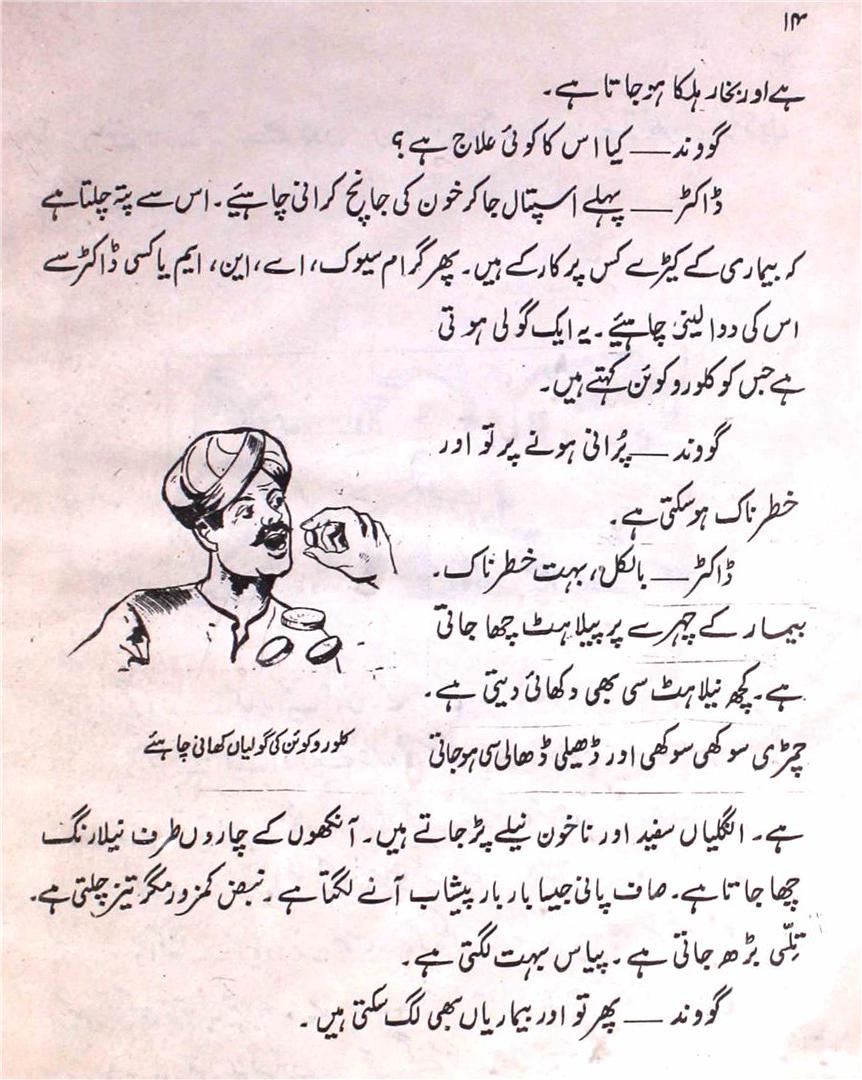 ۱۴
ہے اور بخار ہلکا ہو جاتا ہے۔
گووند — کیا اس کا کوئی علاج ہے؟
ڈاکٹر — پہلے اسپتال جا کر خون کی جانچ کرانی چاہیئے۔ اس سے پتہ چلتا ہے
کہ بیماری کے کیڑے کس پرکار کے ہیں۔ پھر گرام سیوک، اے، این، ایم یا کسی ڈاکٹر سے
اس کی دوا لینی چاہیئے۔ یہ ایک گولی ہوتی
ہے جس کو کلوروکوئن کہتے ہیں۔
گووند — پُرانی ہونے پر تو اور
خطرناک ہو سکتی ہے۔
ڈاکٹر — بالکل، بہت خطرناک۔
بیمار کے چہرے پر پیلاہٹ چھا جاتی
ہے۔ کچھ نیلاہٹ سی بھی دکھائی دیتی ہے۔
چمڑی سوکھی سوکھی اور ڈھیلی ڈھالی سی ہو جاتی
کلوروکوئن کی گولیاں کھانی چاہئے
ہے۔ انگلیاں سفید اور ناخون نیلے پڑ جاتے ہیں۔ آنکھوں کے چاروں طرف نیلا رنگ
چھا جاتا ہے۔ صاف پانی جیسا بار بار پیشاب آنے لگتا ہے۔ نبض کمزور مگر تیز چلتی ہے۔
تِلّی بڑھ جاتی ہے۔ پیاس بہت لگتی ہے۔
گووند — پھر تو اور بیماریاں بھی لگ سکتی ہیں۔